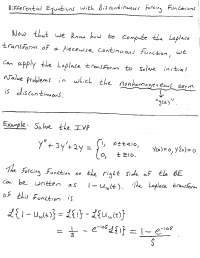 Differential Equations with Discontinuous Forcing Functions
Now that we know how to compute the Laplace
transform of a piecewise continuous function, we
can apply the Laplace transform to solve initial
value problems in which the nonhomogeneous term
is discontinuous. "g(t)"
Example: Solve the IVP
y'' + 3y' + 2y = { 1, 0≤t<10, y(0)=0, y'(0)=0
0, t≥10.
The forcing function on the right side of the DE
can be written as 1 - u₁₀(t). The Laplace transform
of this function is
ℒ{1 - u₁₀(t)} = ℒ{1} - ℒ{u₁₀(t)}
= 1/s - e^(-10s) ℒ{1} = (1 - e^(-10s))/s